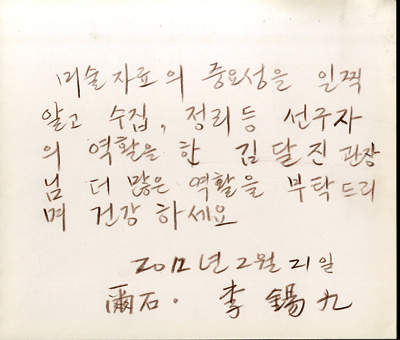 미술자료의 중요성을 일찍
알고 수집, 정리등 선구자
의 역활을 한 김달진 관장
님 더 많은 역활을 부탁드리
며 건강하세요
2012년 2월 21일
爾石. 李錫九